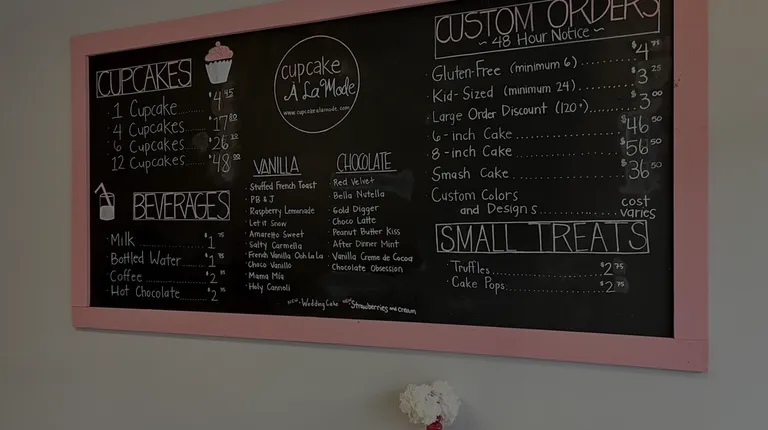 CUPCAKES
1 Cupcake ........ $4 45
4 Cupcakes ........ $17 80
6 Cupcakes ........ $26
12 Cupcakes ........ $48
BEVERAGES
Milk ........ $1 75
Bottled Water ........ $1 75
Coffee ........ $2 75
Hot Chocolate ........ $2 75
cupcake
À La Mode
www.cupcakealamode.com
VANILLA
Stuffed French Toast
PB & J
Raspberry Lemonade
Let it Snow
Amaretto Sweet
Salty Carmella
French Vanilla Ooh La La
Choco Vanillo
Mama Mia
Holy Cannoli
CHOCOLATE
Red Velvet
Bella Nutella
Gold Digger
Choco Latte
Peanut Butter Kiss
After Dinner Mint
Vanilla Creme de Cocoa
Chocolate Obsession
NEW - Wedding Cake NEW Strawberries and cream
CUSTOM ORDERS
~ 48 Hour Notice ~
Gluten-Free (minimum 6) ........ $4 75
Kid-Sized (minimum 24) ........ $3 25
Large Order Discount (120+) ........ $3 00
6-inch Cake ........ $46 50
8-inch Cake ........ $56 50
Smash Cake ........ $36 50
Custom Colors
and Designs ........ cost varies
SMALL TREATS
Truffles ........ $2 75
Cake Pops ........ $2 75